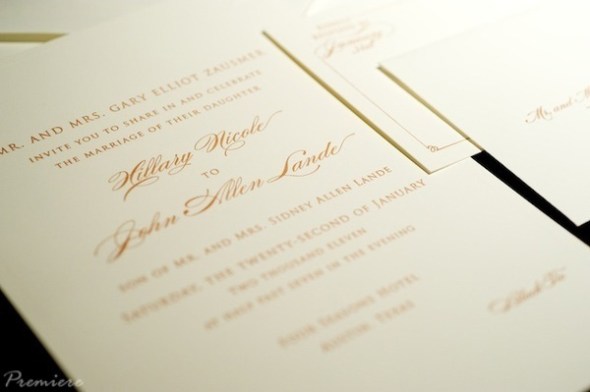 MR. AND MRS. GARY ELLIOT ZAUSMER
INVITE YOU TO SHARE IN AND CELEBRATE
THE MARRIAGE OF THEIR DAUGHTER
Hillary Nicole
TO
John Allen Lande
SON OF MR. AND MRS. SIDNEY ALLEN LANDE
SATURDAY, THE TWENTY-SECOND OF JANUARY
TWO THOUSAND ELEVEN
AT HALF PAST SEVEN IN THE EVENING
FOUR SEASONS HOTEL
AUSTIN, TEXAS
Black Tie
Mr. and M
Premiere